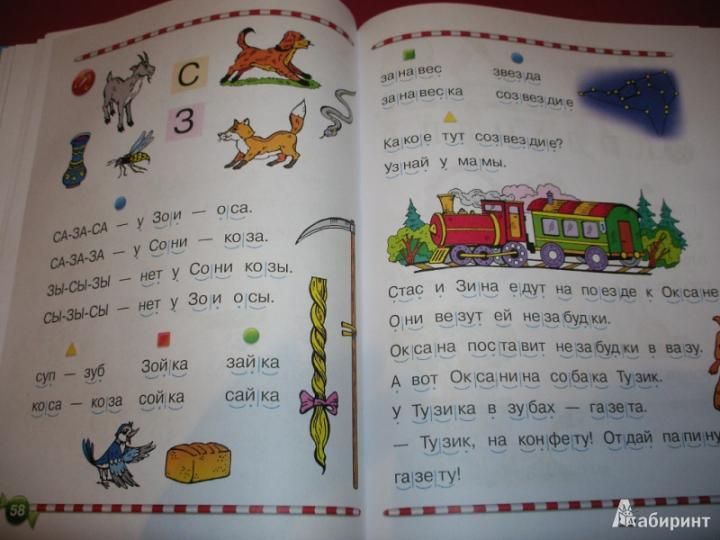 С
З
СА-ЗА-СА — у Зои — оса.
СА-ЗА-ЗА — у Сони — коза.
ЗЫ-СЫ-ЗЫ — нет у Сони козы.
СЫ-ЗЫ-СЫ — нет у Зои осы.
суп — зуб Зойка зайка
коса — коза сойка сайка
58
занавес звезда
занавеска созвездие
Какое тут созвездие?
Узнай у мамы.
Стас и Зина едут на поезде к Оксане
Они везут ей незабудки.
Оксана поставит незабудки в вазу.
А вот Оксанина собака Тузик.
У Тузика в зубах — газета.
— Тузик, на конфету! Отдай папину
газету!
Лабиринт